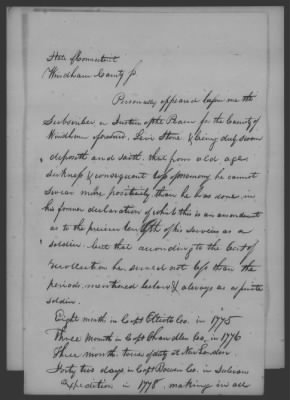 State of Connecticut
Windham County ss
Personally appeared before me the
Subscriber a Justice of the Peace for the County of
Windham aforesaid, Stone & being duly sworn
deposeth and saith that from old age
sickness & consequent loss of memory he cannot
swear more positively than he has done in
his former declaration of which this is an amendment
as to the precise length of his services as a
soldier but that according to the best of
recollection he served not less than the
periods mentioned below & always as a private
soldier.
Eight month in Capt Co. in 1775
Three Month in Capt Chandler Co. in 1776
Three month tour of duty at New London.
Forty two days in Capt Co. in Sulivan
Expedition in 1778, making in all